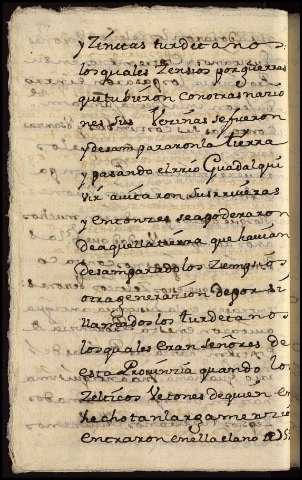 y Zinitas turdetanos
los quales Zensios por guerras
que tubieron con otras nazio
nes sus Vezinas se fueron
y desampararon la tierra
y pasando el rrio Guadalqui
vir avitaron sus rriveras
y entonzes se apoderaron
de aquella tierra que havian
desamparado los
otra generazion de por si
llamados los turdetanos
los quales eran Señores de
esta Provinzia quando los
Zelticos Vetones de quien en
hecho tan larga menzio
entraron en ella el ano